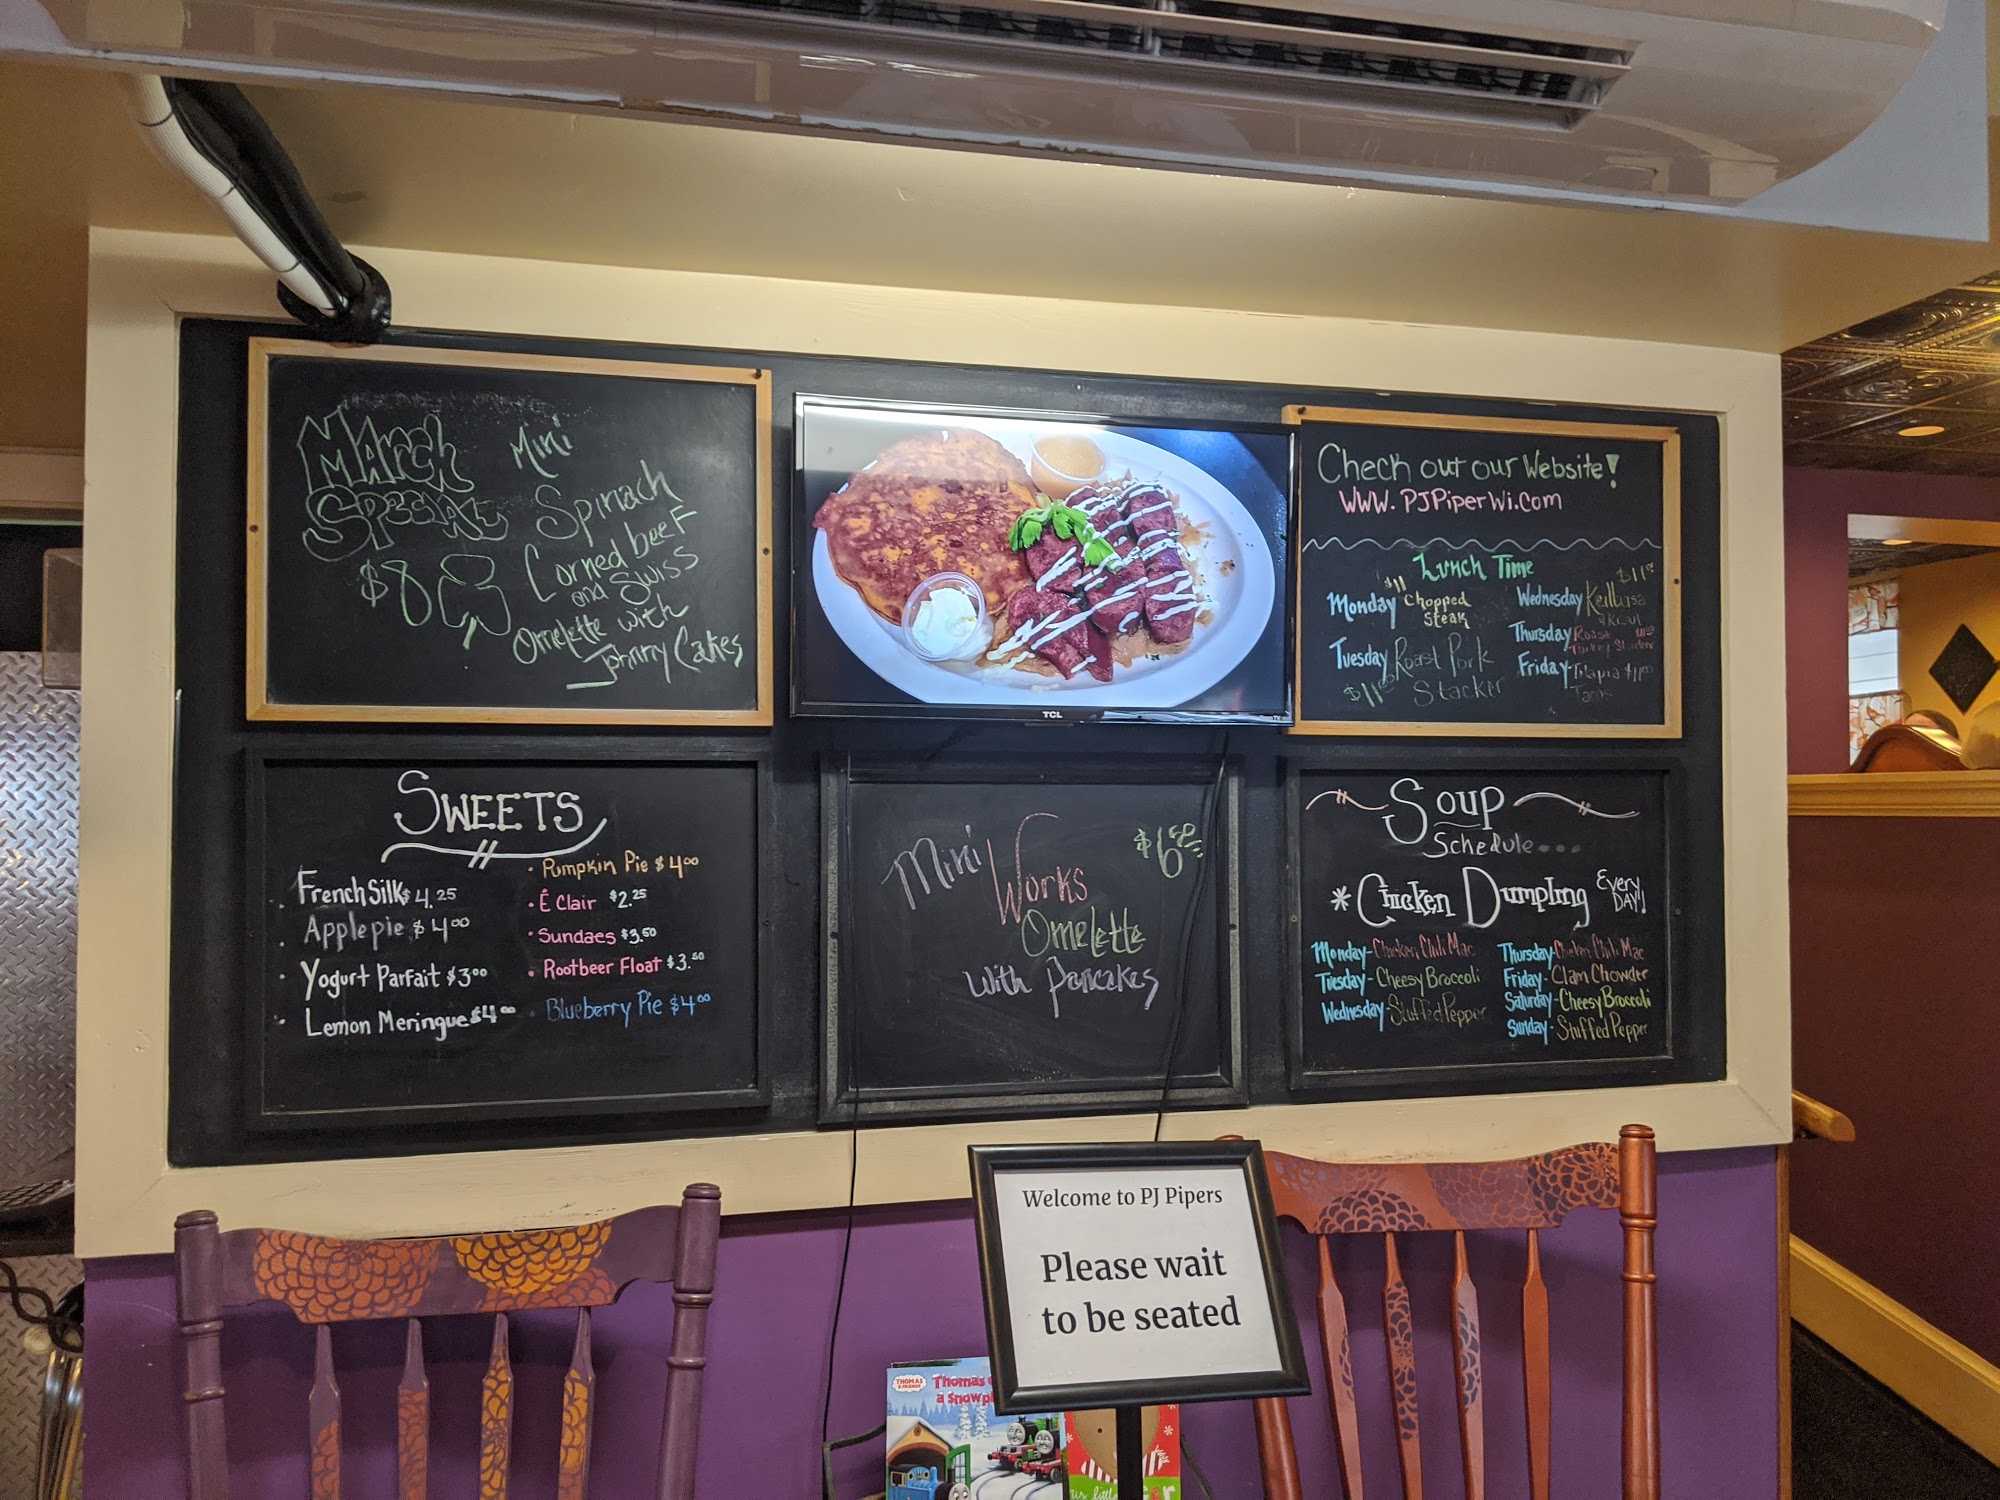 March
Special
$8
Mini
Spinach
Corned beef
and Swiss
Omelette with
Johnny Cakes
TCL
Check out our Website!
WWW.PJPiperWi.com
Lunch Time
Monday $11 Chopped Steak
Tuesday Roast Pork Stacker
$11.00
Wednesday Keilbasa
& Kraut
Thursday Roast
Turkey Slider
Friday - Tilapia $11.00
Tacos
SWEETS
French Silk $4.25
Apple pie $4.00
Yogurt Parfait $3.00
Lemon Meringue $4.00
• Pumpkin Pie $4.00
• É Clair $2.25
• Sundaes $3.50
• Rootbeer Float $3.50
• Blueberry Pie $4.00
Mini
Works
Omelette
with Pancakes
$6.50
Soup
Schedule...
* Chicken Dumpling Every DAY!
Monday - Chicken Chili Mac
Tuesday - Cheesy Broccoli
Wednesday - Stuffed Pepper
Thursday - Chicken Chili Mac
Friday - Clam Chowder
Saturday - Cheesy Broccoli
Sunday - Stuffed Pepper
Welcome to PJ Pipers
Please wait
to be seated
THOMAS
& FRIENDS
Thomas
a Snowpl